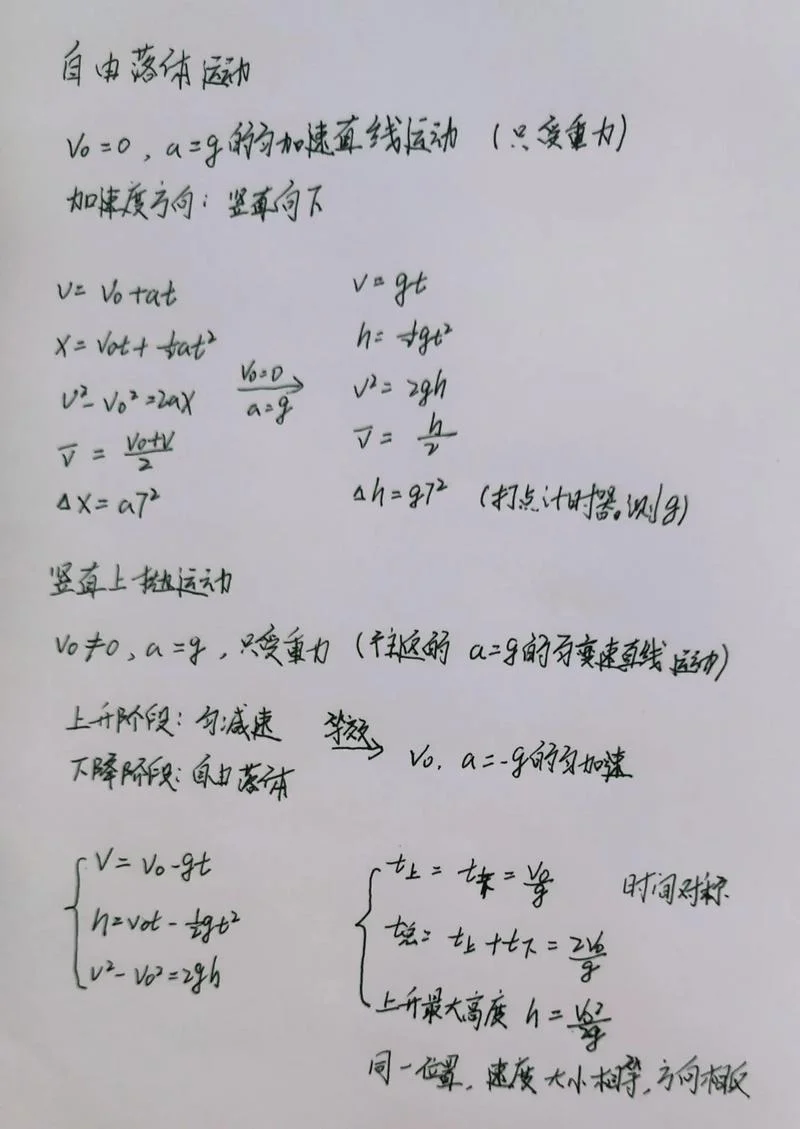 自由落体运动
v₀=0，a=g的匀加速直线运动（只受重力）
加速度方向：竖直向下
v=v₀+at
x=v₀t+½at²
v²-v₀²=2ax
v̄=(v₀+v)/2
Δx=aT²
v₀=0
a=g
v=gt
h=½gt²
v²=2gh
v̄=h/2
Δh=gT²（打点计时器测g）
竖直上抛运动
v₀≠0，a=g，只受重力（的 a=g的匀变速直线运动）
上升阶段：匀减速
下降阶段：自由落体
等效
v₀，a=-g的匀加速
v=v₀-gt
h=v₀t-½gt²
v²-v₀²=2gh
t上=t下=v₀/g 时间对称
t总=t上+t下=2v₀/g
上升最大高度 h=v₀²/2g
同一位置，速度大小相等，方向相反